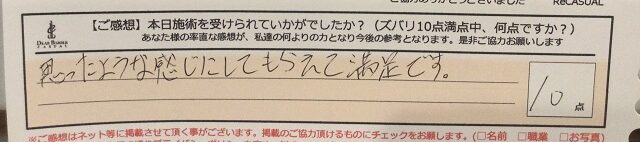 ReCASUAL
【ご感想】本日施術を受けられていかがでしたか？（ズバリ10点満点中、何点ですか？）
あなた様の率直な感想が、私達の何よりの力となり今後の参考となります。是非ご協力お願いします
思ったような感じにしてもらえて満足です。
10点
※ご感想はネット等に掲載させて頂く事がございます。掲載のご協力頂けるものにチェックをお願します。（□名前 □職業 □お写真）